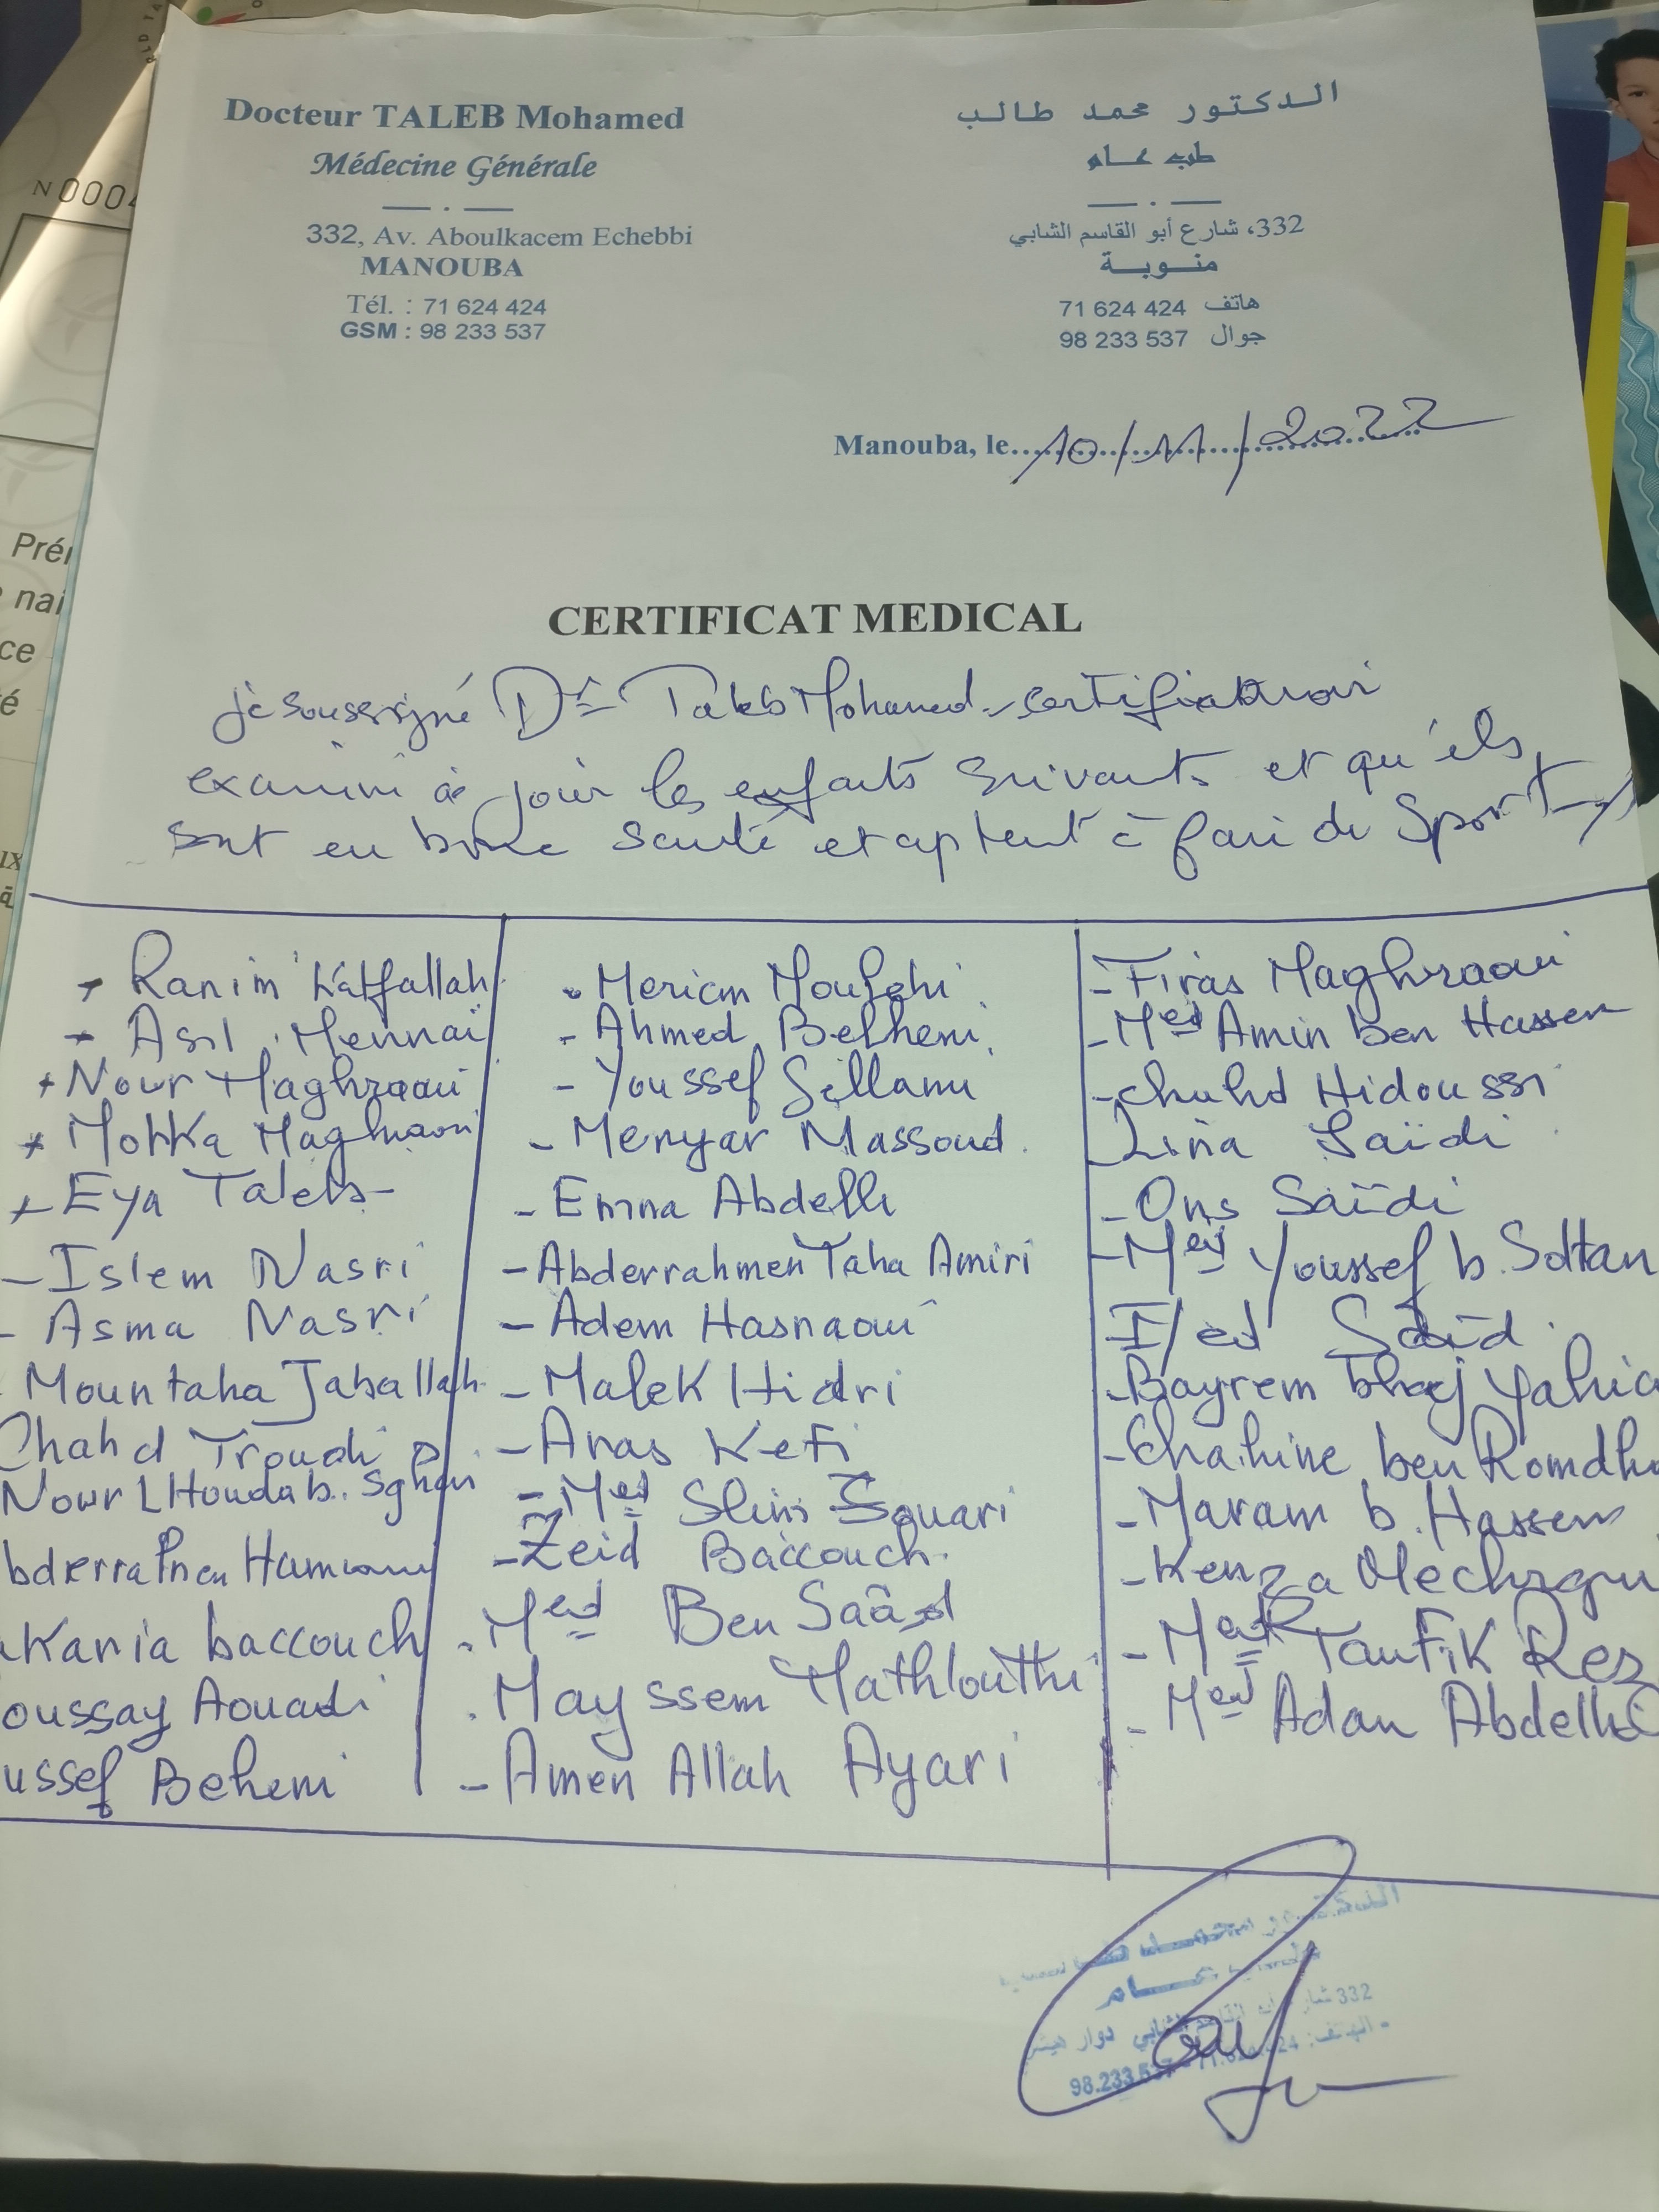 Docteur TALEB Mohamed
Médecine Générale
332, Av. Aboulkacem Echebbi
MANOUBA
Tél. : 71 624 424
GSM : 98 233 537
الدكتور محمد طالب
طب عام
332، شارع أبو القاسم الشابي
منوبة
هاتف 71 624 424
جوال 98 233 537
Manouba, le 10/11/2022
CERTIFICAT MEDICAL
je soussigné Dr Taleb Mohamed certifie avoir
examiné à jour les enfants suivants et qu'ils
sont en bonne santé et à faire du Sport
Ranim Katfallah
Asil Mennaï
Nour Maghraoui
Mokka Maghraoui
Eya Taleb
- Islem Nasri
- Asma Nasri
Mountaha Jaballah
Chahd Troudi
Nour L Houda b. Sghair
Hamraoui
Kania baccouch
oussay Aouadi
ussef Behemi
- Meriem
- Ahmed Belhemi
- Youssef Sellami
- Menyar Massoud
- Emna Abdelli
- Abderrahmen Taha Amiri
- Adem Hasnaoui
- Malek Hidri
- Anas Kefi
- Med Slim Souari
- Zeid Baccouch
- Med Ben Saâd
Mayssem Mathlouthi
- Amen Allah Ayari
- Firas Maghraoui
- Med Amin ben Hassen
- Chahd Hidoussi
- Lina Saïdi
- Ons Saïdi
- Med Youssef b. Soltan
Saïd
- Bayrem Yahia
- Chahine ben Romdh
- Maram b. Hassen
- Kenza
- Med Taufik Rez
- Med Adan Abdelli
332
98.233.537
N 0004
Pré
nai
ce
é